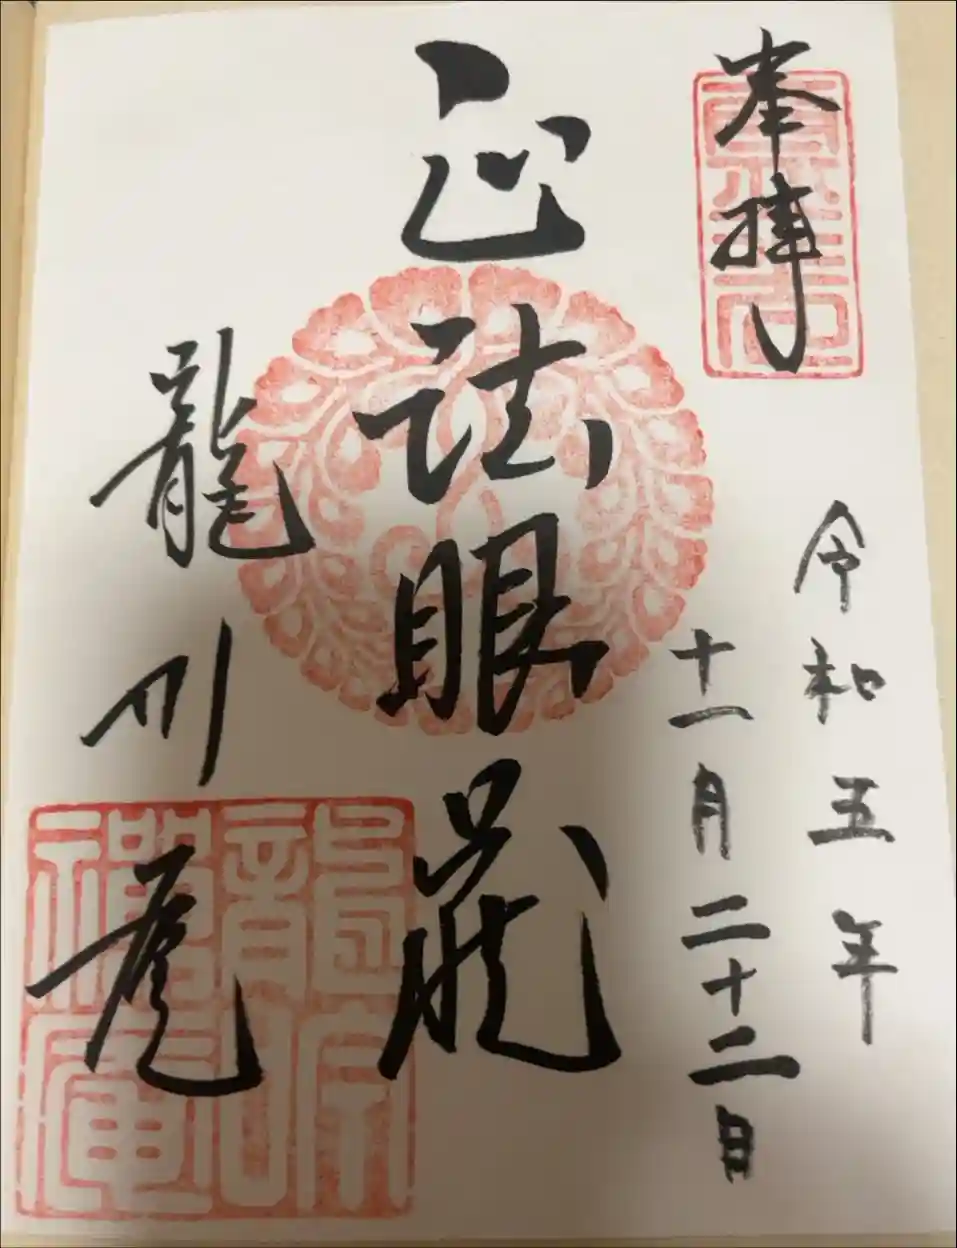 奉拝
令和五年
十一月二十二日
正法眼蔵
龍吟庵
龍吟
禅庵